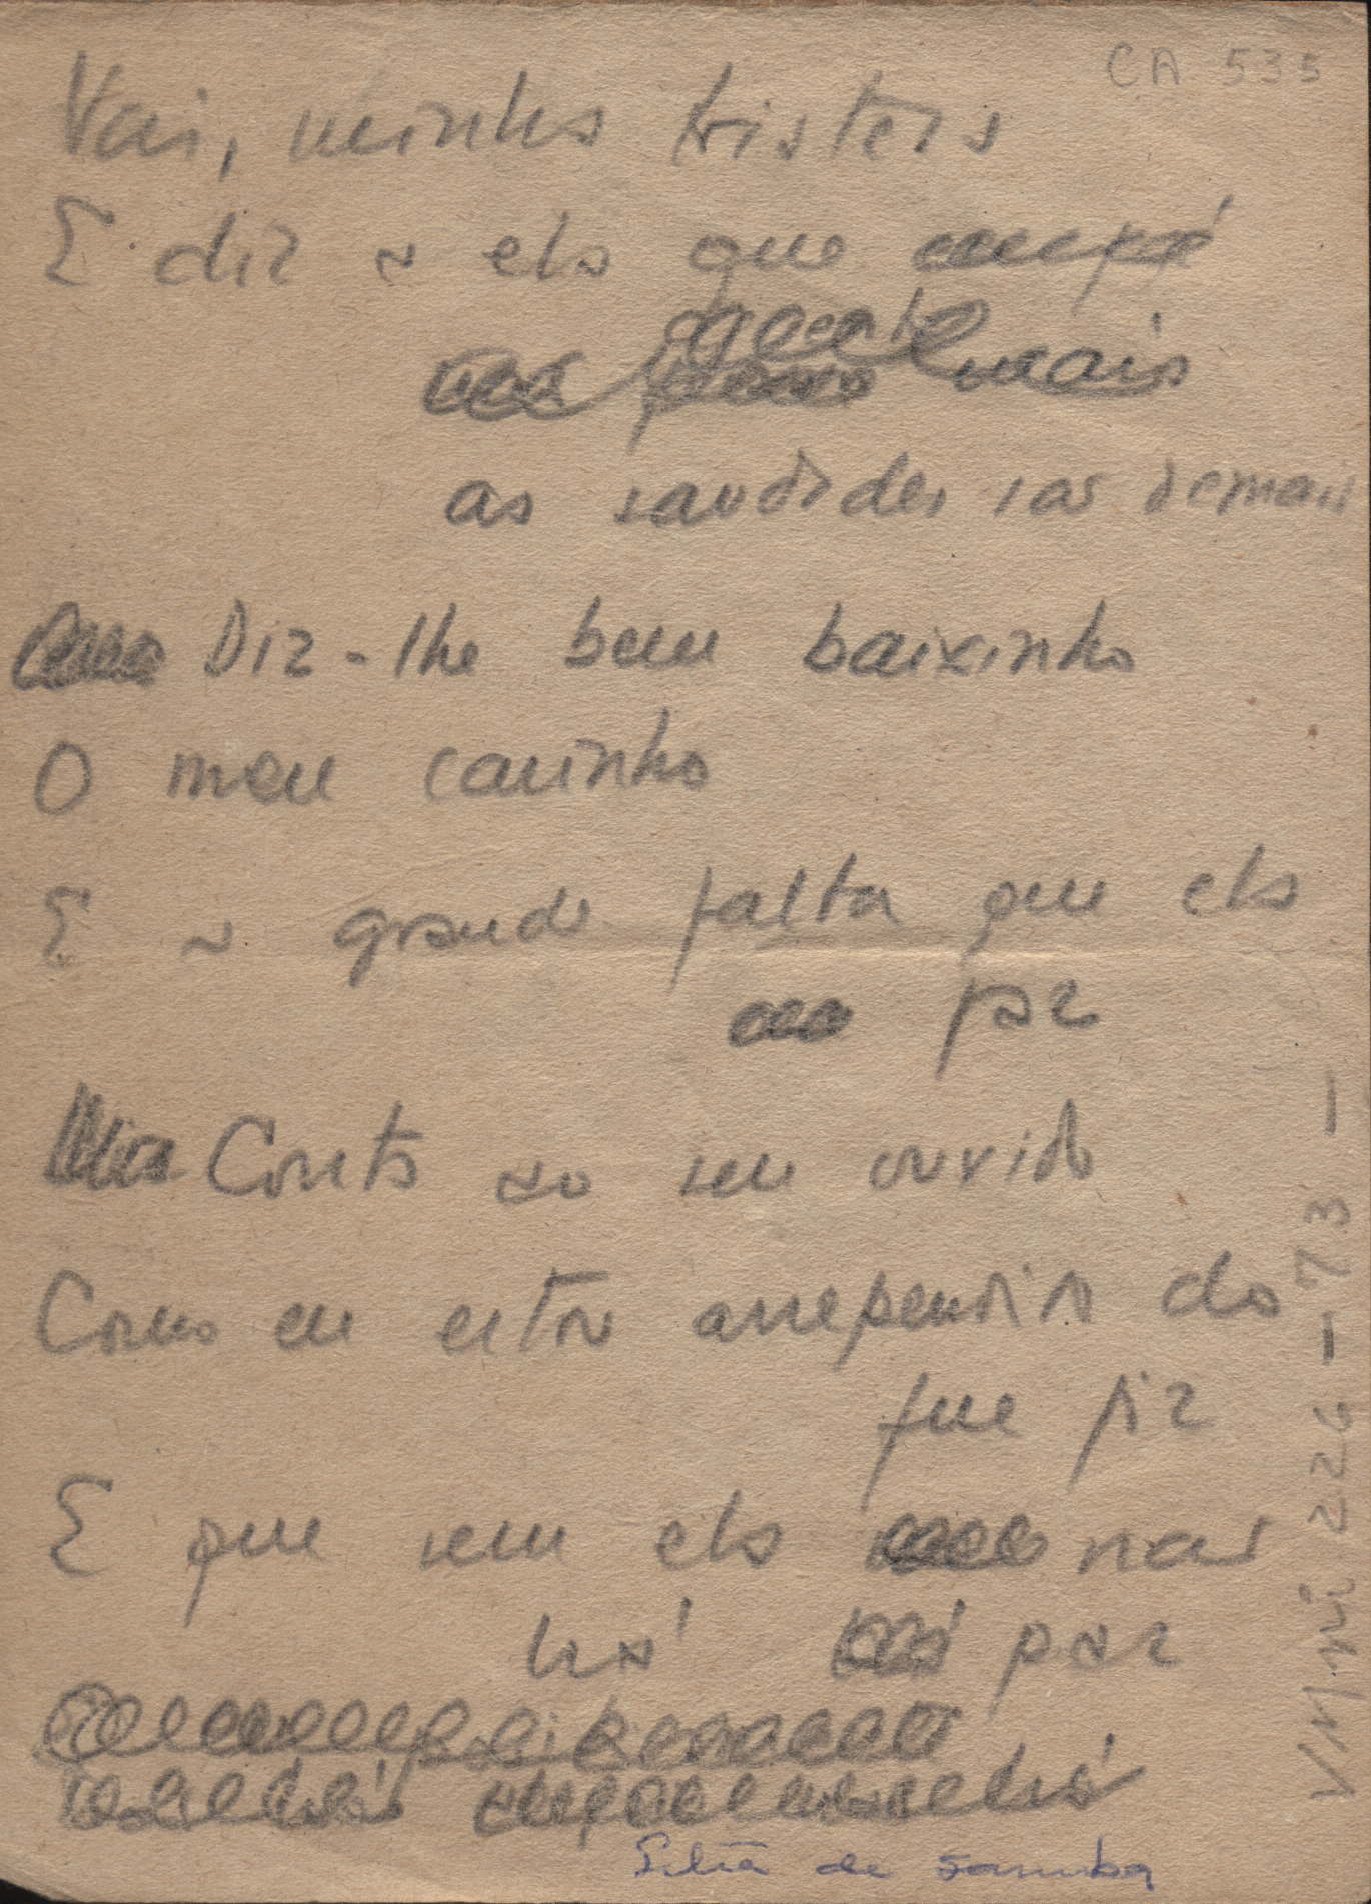 CA 535
Vai, minha tristeza
E diz a ela que
mais
as saudades são demais
Diz-lhe bem baixinho
O meu carinho
E a grande falta que ela
faz
Conta ao seu ouvido
Como eu estou arrependido do
que fiz
E que sem ela não
há paz
de samba
VM pi 226 - 73 -